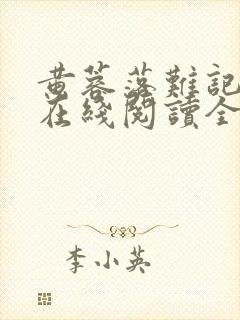 黄蓉落難記
在綫閱讀全
李小英